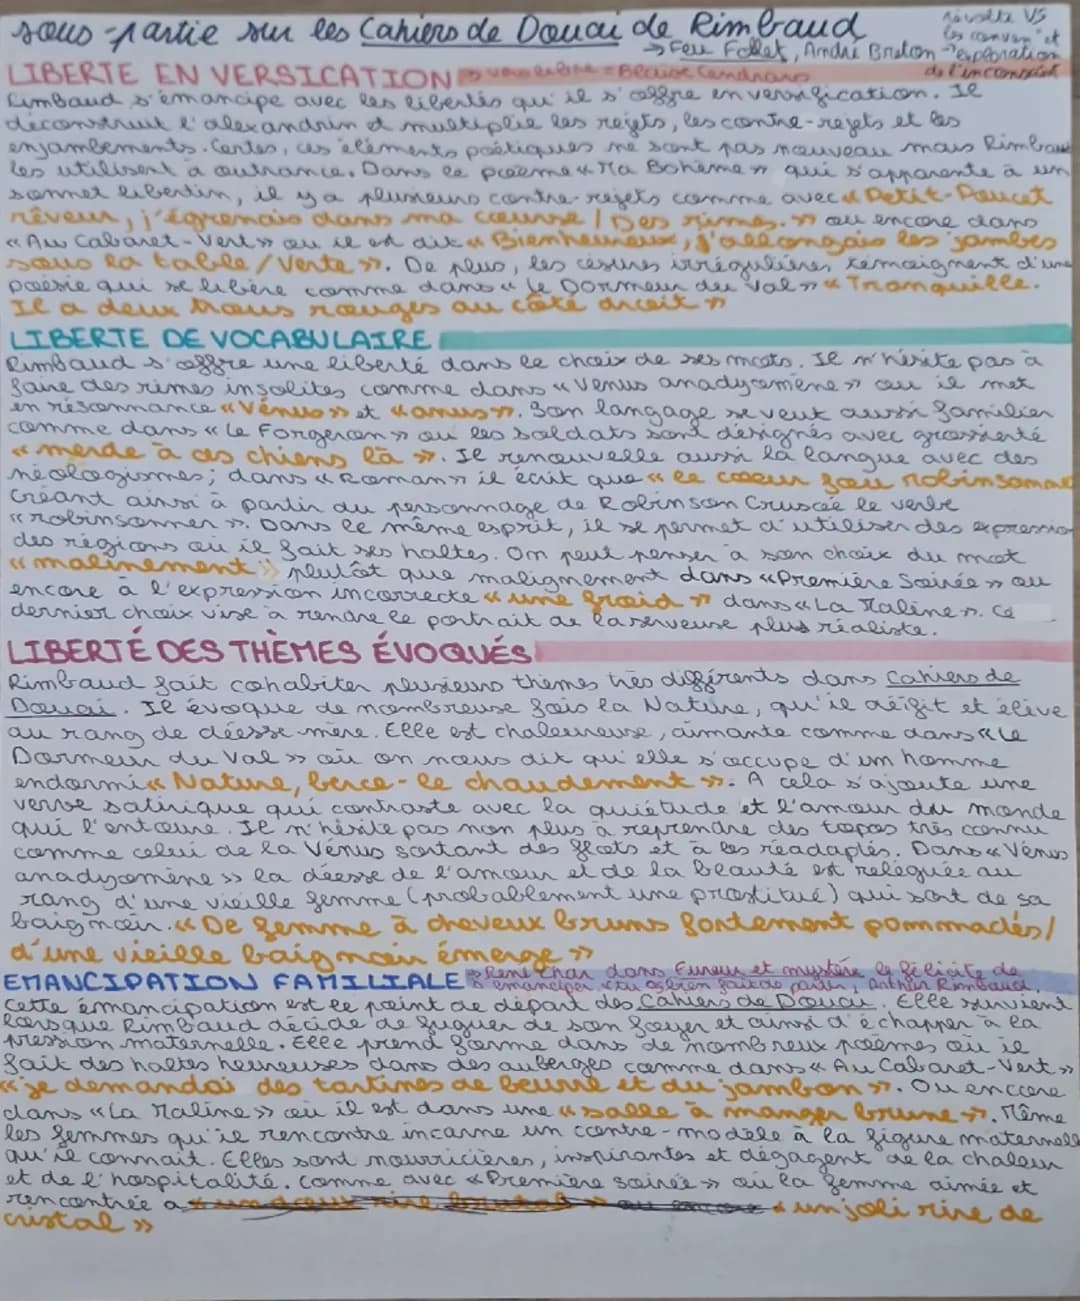 sous-partie sur les Cahiers de Douai de Rimbaud
révolte VS
les conven° et
→ Feu Follet, André Breton → exploration
de l'inconscient
LIBERTE EN VERSICATION → vers libre = Blaise Cendrars
Rimbaud s'émancipe avec les libertés qu'il s'offre en versification. Il
déconstruit l'alexandrin et multiplie les rejets, les contre-rejets et les
enjambements. Certes, ces éléments poétiques ne sont pas nouveau mais Rimbaud
les utilisent à outrance. Dans le poème « Ma Bohème » qui s'apparente à un
sonnet libertin, il y a plusieurs contre-rejets comme avec « Petit-Poucet
rêveur, j'égrenais dans ma course / Des rimes. » ou encore dans
« Au Cabaret-Vert » où il est dit « Bienheureux, j'allongeais les jambes
sous la table / Verte ». De plus, les césures irrégulières témoignent d'une
poésie qui se libère comme dans « Le Dormeur du Val » « Tranquille.
Il a deux trous rouges au côté droit »
LIBERTE DE VOCABULAIRE
Rimbaud s'offre une liberté dans le choix de ses mots. Il n'hésite pas à
faire des rimes insolites comme dans « Venus anadyomène » où il met
en résonnance « Vénus » et « anus ». Son langage se veut aussi familier
comme dans « Le Forgeron » où les soldats sont désignés avec grossièreté
« merde à ces chiens là ». Il renouvelle aussi la langue avec des
néologismes; dans « Roman » il écrit que « le coeur fou robinsonne
Créant ainsi à partir du personnage de Robinson Crusoée le verbe
« robinsonner ». Dans le même esprit, il se permet d'utiliser des expression
des régions où il fait ses haltes. On peut penser à son choix du mot
« malinement » plutôt que malignement dans « Première Soirée » ou
encore à l'expression incorrecte « une froid » dans « La Maline ». Ce
dernier choix vise à rendre le portrait de la serveuse plus réaliste.
LIBERTÉ DES THÈMES ÉVOQUÉS
Rimbaud fait cohabiter plusieurs thèmes très différents dans Cahiers de
Douai. Il évoque de nombreuse fois la Nature, qu'il déifit et élève
au rang de déesse-mère. Elle est chaleureuse, aimante comme dans « Le
Dormeur du Val » où on nous dit qu'elle s'occupe d'un homme
endormi « Nature, berce-le chaudement ». A cela s'ajoute une
verve satirique qui contraste avec la quiétude et l'amour du monde
qui l'entoure. Il n'hésite pas non plus à reprendre des topos très connu
comme celui de la Vénus sortant des flots et à les réadaptés. Dans « Vénus
anadyomène » la déesse de l'amour et de la beauté est reléguée au
rang d'une vieille femme (probablement une prostitué) qui sort de sa
baignoir. « De femme à cheveux bruns fortement pommadés /
d'une vieille baignoir émerge »
EMANCIPATION FAMILIALE → René Char dans Fureur et mystère la félicite de
s'émanciper « tu as bien fait de partir, Arthur Rimbaud.
Cette émancipation est le point de départ des Cahiers de Douai. Elle survient
lorsque Rimbaud décide de fuguer de son foyer et ainsi d'échapper à la
pression maternelle. Elle prend forme dans de nombreux poèmes où il
fait des haltes heureuses dans des auberges comme dans « Au Cabaret-Vert »
« je demandai des tartines de beurre et du jambon ». Ou encore
dans « La Maline » où il est dans une « salle à manger brune ». Même
les femmes qu'il rencontre incarne un contre-modèle à la figure maternelle
qu'il connait. Elles sont nourricières, inspirantes et dégagent de la chaleur
et de l'hospitalité. Comme avec « Première soirée » où la femme aimée et
rencontrée a « un joli rire de
cristal »